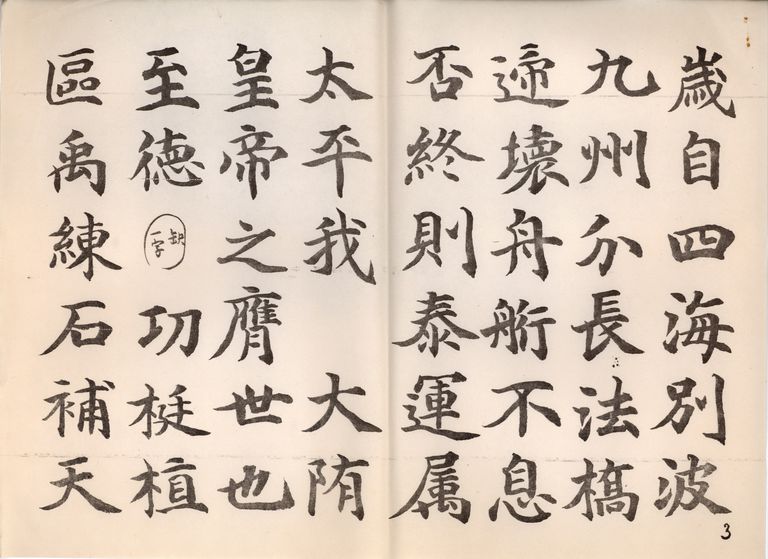 歲自四海別波
九州分長法橋
遆壞舟不息
否終則泰運属
太平我　大陏
皇帝之膺世也
至德缺一字功梃植
區禹練石補天
3